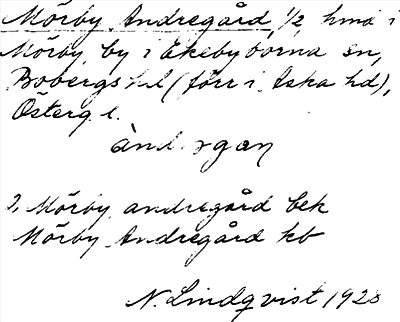 Mörby Andregård, 1/2 hmd i
Mörby by i Ekebyborna sn,
Bobergs hd (förr i Aska hd),
Österg. l.
ànd rgan
2, Mörby andregård bek
Mörby Andregård kb
N. Lindqvist 1928